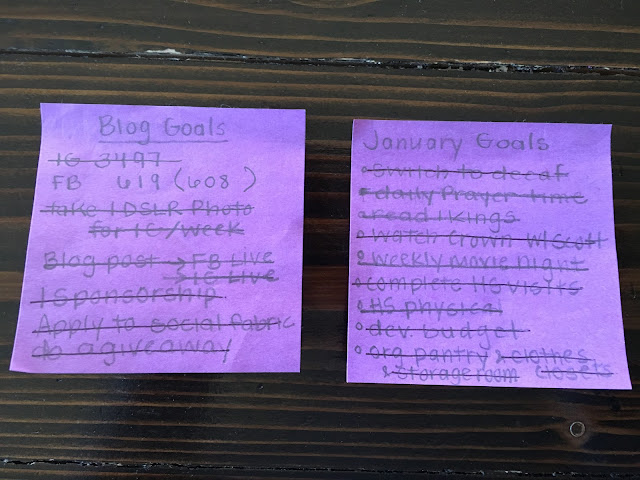 Blog Goals
IG 3497
FB 619 (608)
take 1 DSLR Photo
for IG/week
Blog post → FB Live
→ IG Live
1 sponsorship
Apply to social fabric
do a giveaway
January Goals
switch to decaf
daily Prayer time
read 1 Kings
watch Crown w/ Scott
weekly movie night
complete HS visits
HS physical
dev. budget
org pantry & clothes
& storage room closets